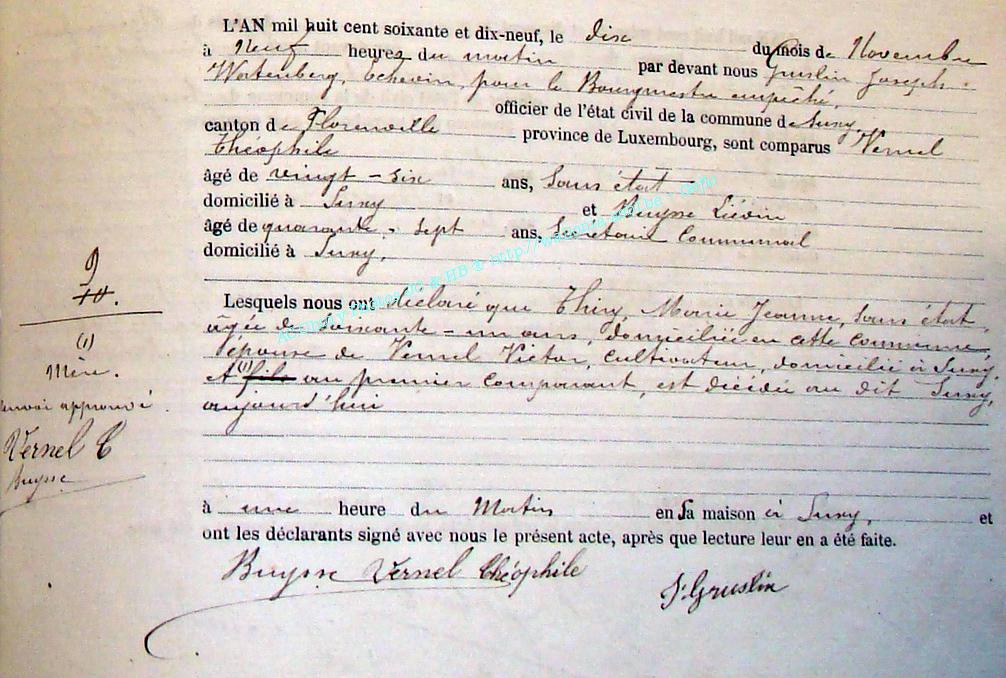 L'AN mil huit cent soixante et dix-neuf, le dix du mois de Novembre
à Neuf heures du matin par devant nous Gruslin Joseph
Watenberg, Echevin, pour le Bourgmestre empêché,
officier de l'état civil de la commune de Suxy,
canton de Florenville province de Luxembourg, sont comparus Vernel
Théophile
âgé de vingt-six ans, sans état
domicilié à Suxy et Buysse Liévin
âgé de quarante-sept ans, Secrétaire Communal
domicilié à Suxy,
9
10.
(1)
Mère.
renvoi approuvé
Vernel T
Buysse
Lesquels nous ont déclaré que Thiry, Marie Jeanne, sans état,
âgée de soixante-un ans, domiciliée en cette commune,
épouse de Vernel Victor, cultivateur, domicilié à Suxy,
et (1) fils au premier comparant, est décédée au dit Suxy,
aujourd'hui
à une heure du Matin en sa maison à Suxy, et
ont les déclarants signé avec nous le présent acte, après que lecture leur en a été faite.
Buysse Vernel Théophile
J. Gruslin